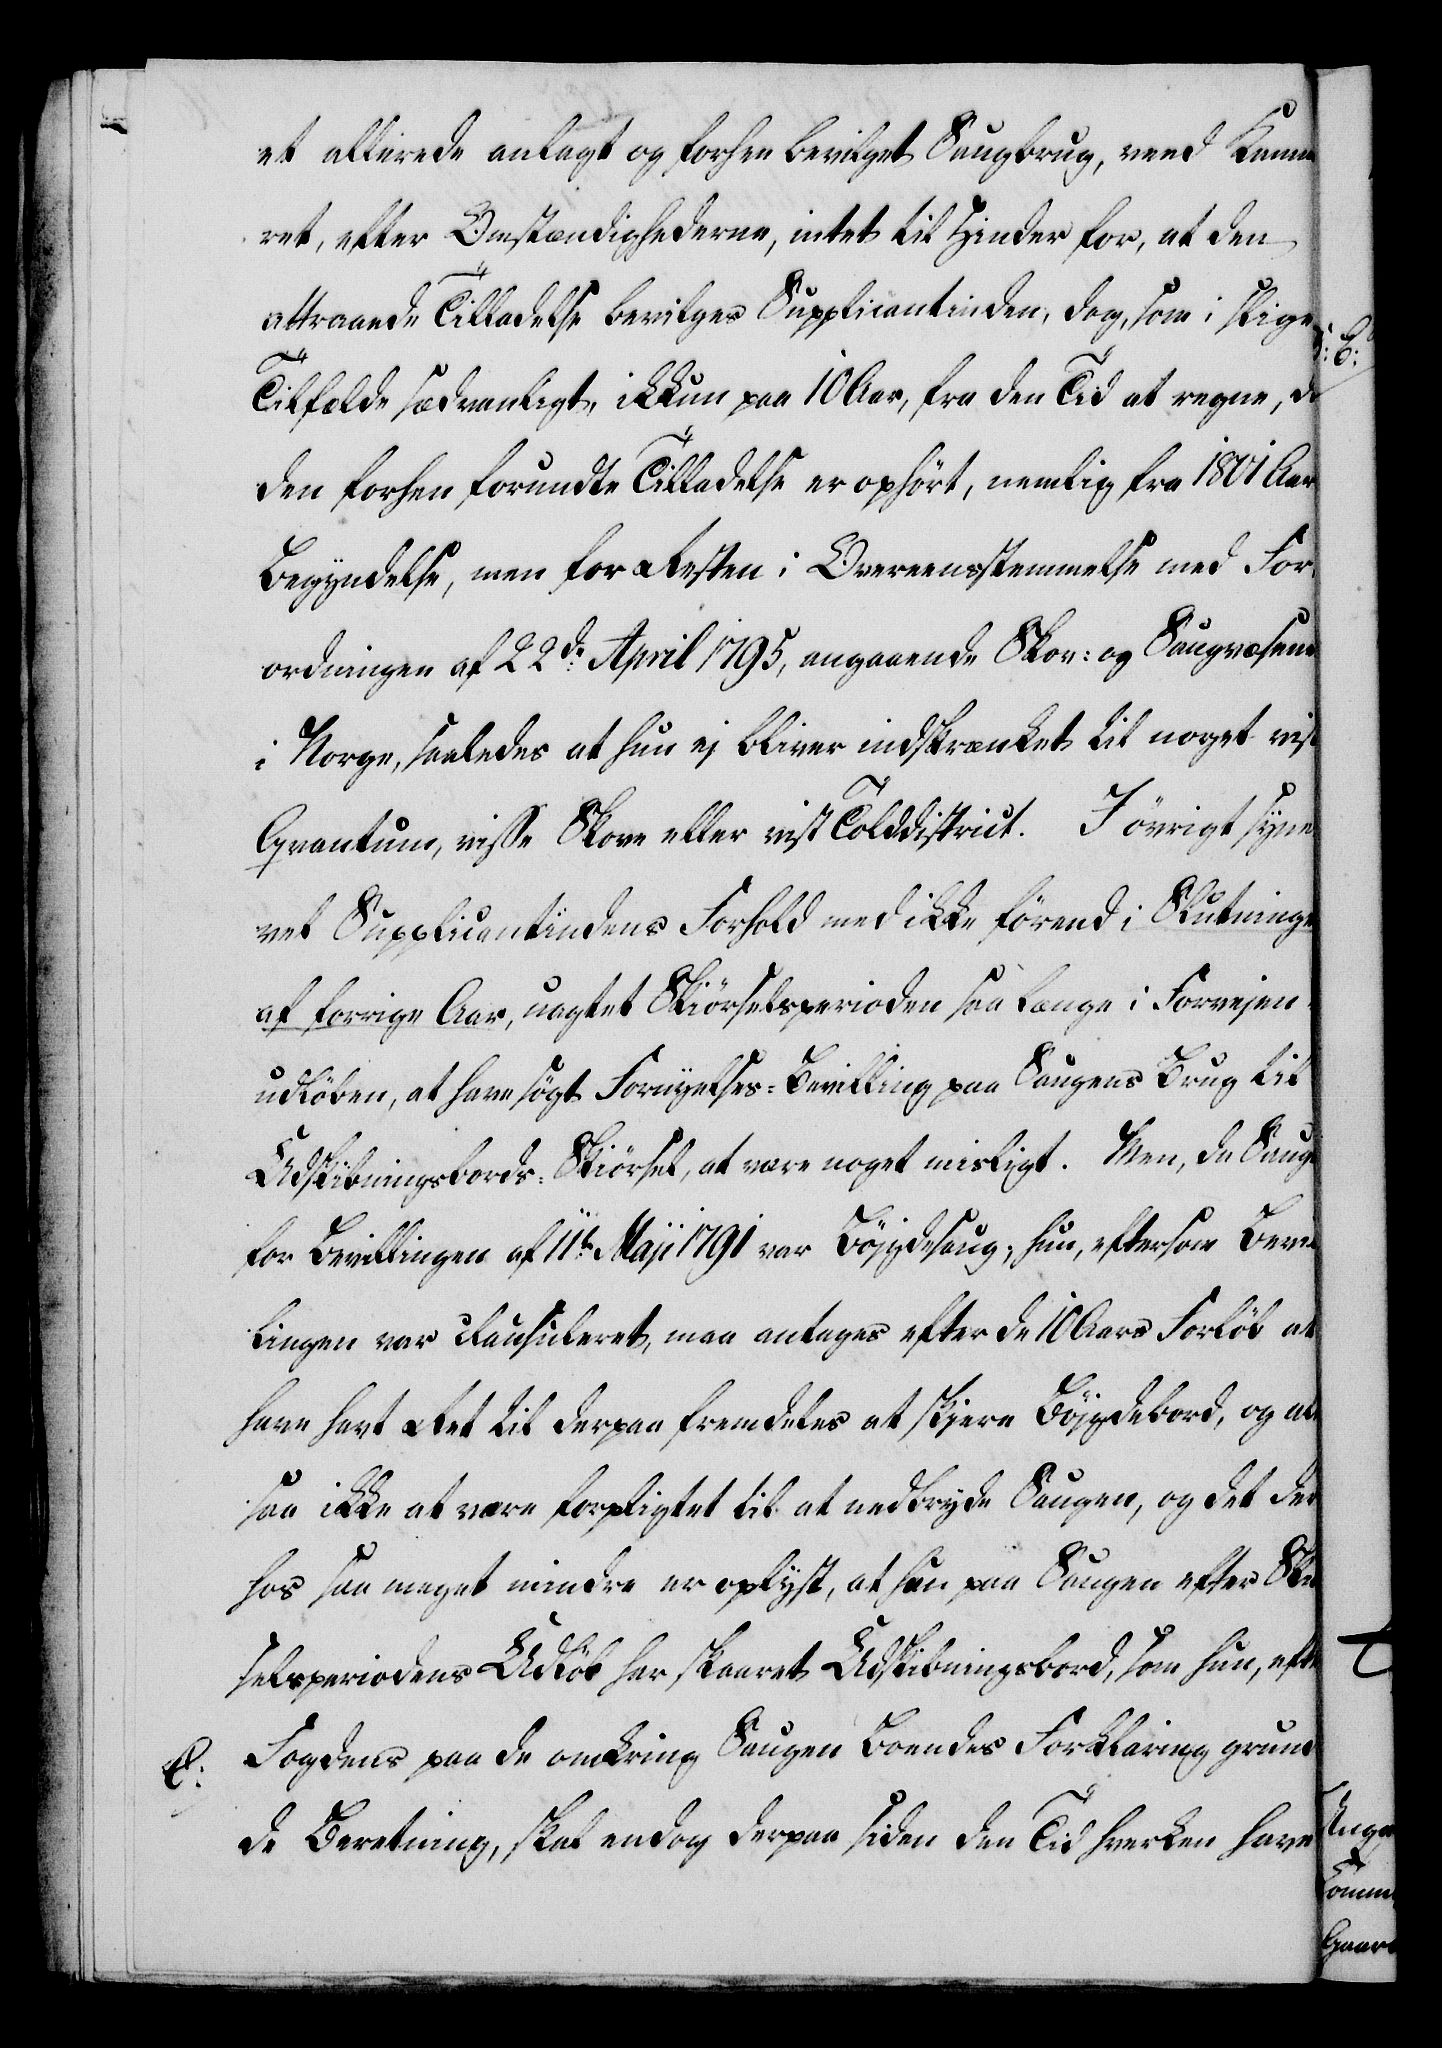 et allerede anlagt og forhen bevilget Saugbrug, veed Kamme
ret, efter Omstændighederne, intet til Hinder for, at den
attraaede Tilladelse bevilges Supplicantinden, dog, som i slige
Tilfælde sædvanligt, ikkun paa 10 Aar, fra den Tid at regne, da
den forhen forundte Tilladelse er ophört, nemlig fra 1801 Aar
Begÿndelse, men for Resten i Overeensstemmelse med For,
ordningen af 22de April 1795, angaaende Skov- og Saugvæsene
i Norge, saaledes at hun ej bliver indskrænket til noget vist
Qvantum, visse Skove eller vist Tolddistrict. I övrigt sÿnes
vel Supplicantindens Forhold med ikke förend i Slutninge
af forrige Aar, uagtet Skiörselsperioden saa længe i Forvejen
udlöben, at have sögt Fornÿelses-Bevilling paa Saugens Brug til
Udskibningsbords-Skiörsel, at være noget misligt. Men, da Saugen
for Bevillingen af 11te Maji 1791 var Böjgdesaug, hun, eftersom Bevil
lingen var clausuleret, maa antages efter de 10 Aars Forløb at
have havt Ret til derpaa fremdeles at skjere Böjgdebord, og alt
saa ikke at være forpligtet til at nedbryde Saugen, og det der
hos saa meget mindre er oplÿst, at hun paa Saugen efter Skiör
selsperiodens Udlöb har skaaret Udskibningsbord, som hun, efter
E: Fogdens paa de omkring Saugen Boendes Forklaring grund
de Beretning, skal endog derpaa siden den Tid hverken have